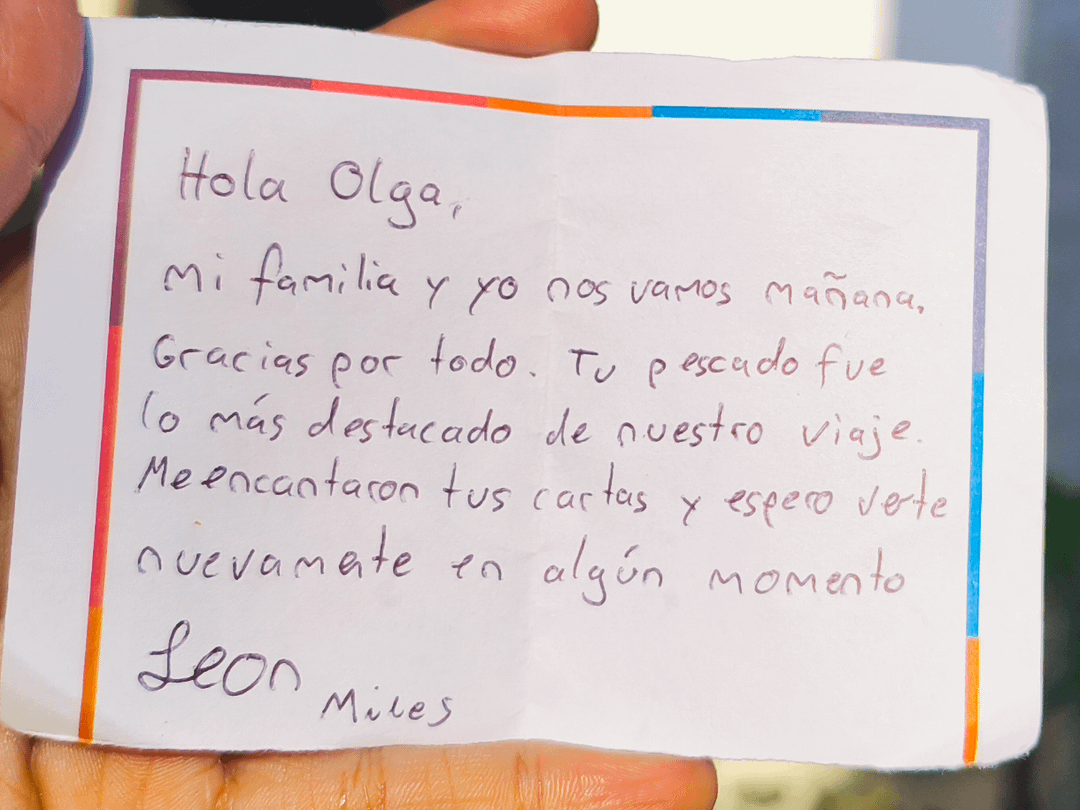 Hola Olga,
Mi familia y yo nos vamos mañana.
Gracias por todo. Tu pescado fue
lo más destacado de nuestro viaje.
Me encantaron tus cartas y espero verte
nuevamente en algún momento
Leon
Miles